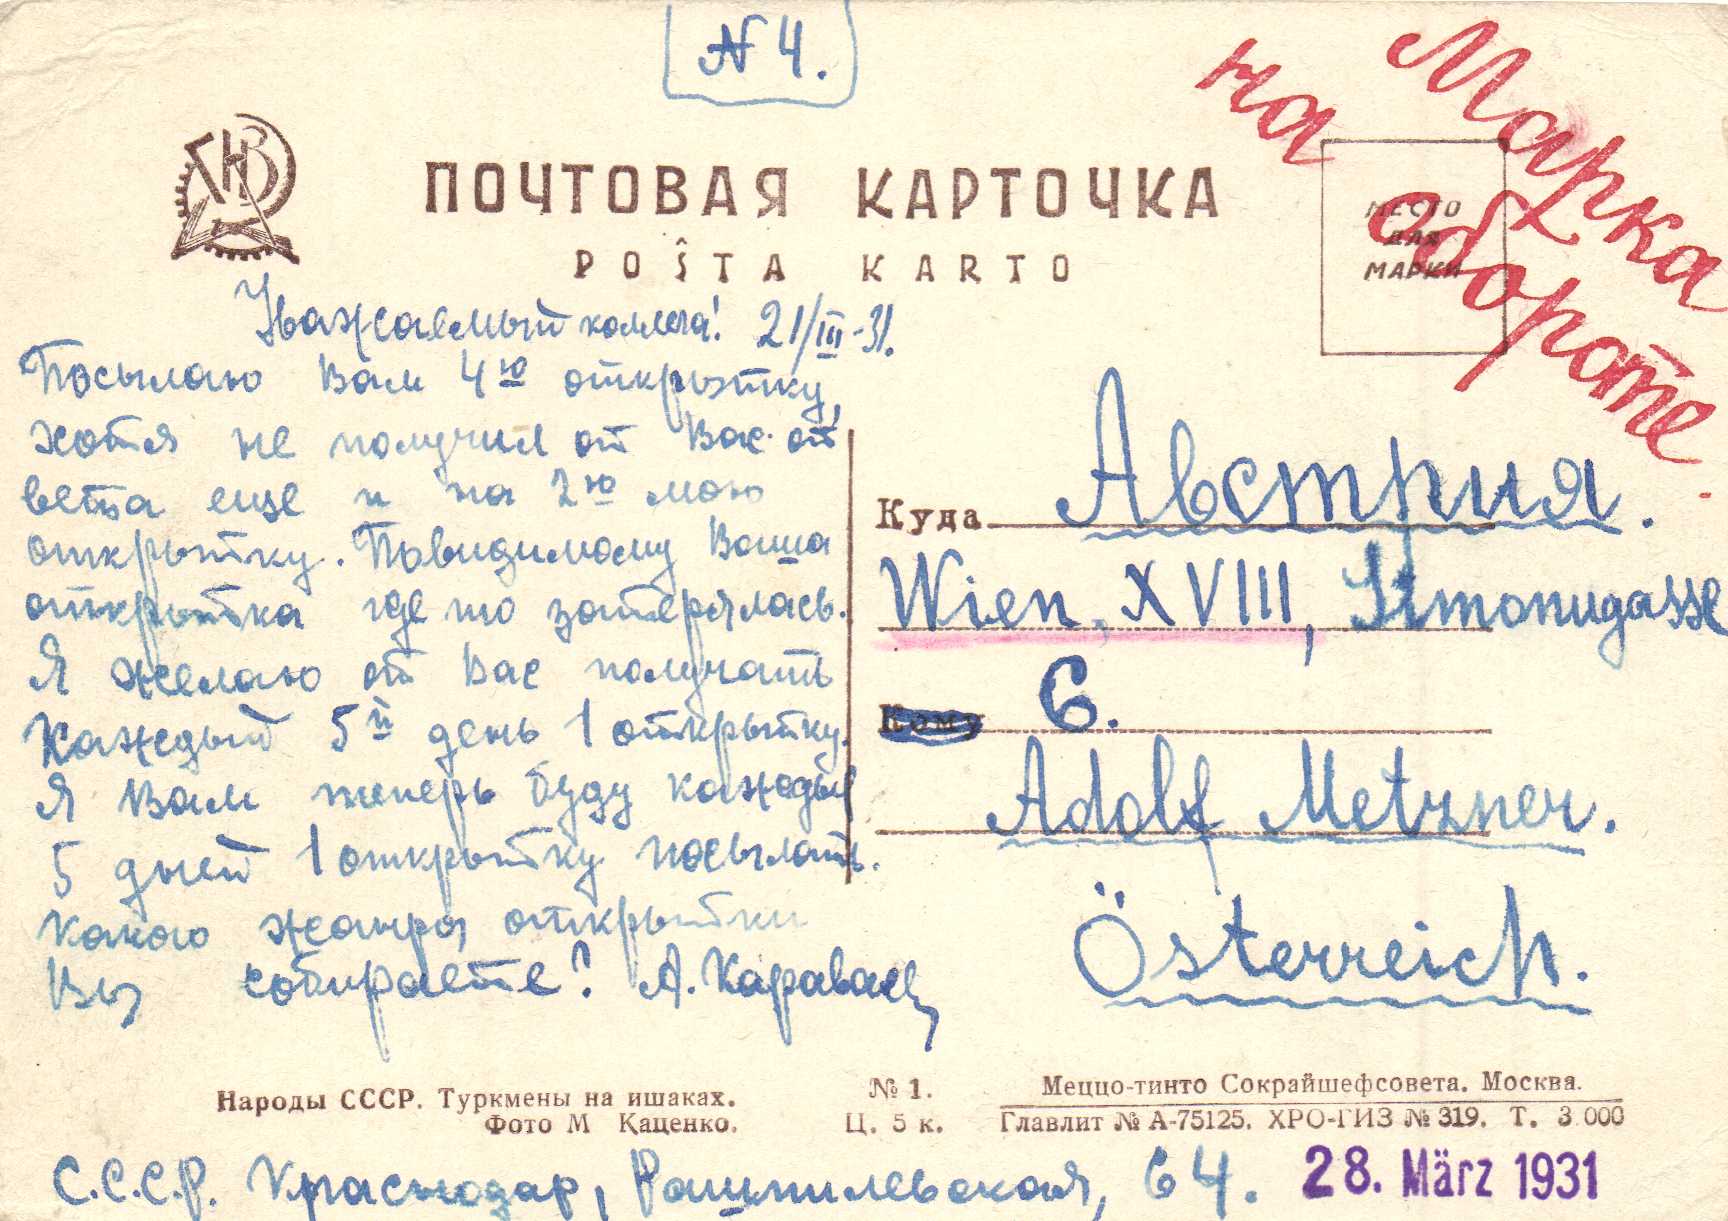 N 4.
Марка
на обороте.
ПОЧТОВАЯ КАРТОЧКА
POŜTA KARTO
МЕСТО
ДЛЯ
МАРКИ
Уважаемый коллега! 21/III-31.
Посылаю Вам 4ю открытку,
хотя не получил от Вас от
вета еще и на 2ю мою
открытку. Повидимому Ваша
открытка где то затерялась.
Я желаю от Вас получать
Каждый 5й день 1 открытку.
Я Вам теперь буду каждые
5 дней 1 открытку посылать.
Какого жанра открытки
Вы собираете? А. Караваец
Куда Австрия.
Wien, XVIII, Simonygasse
Кому 6.
Adolf Metzner.
Österreich.
Народы СССР. Туркмены на ишаках.
Фото М Каценко.
№ 1.
Ц. 5 к.
Меццо-тинто Сокрайшефсовета. Москва.
Главлит № А-75125. ХРО-ГИЗ № 319. Т. 3 000
С.С.С.Р. Краснодар, Рашпилевская, 64.
28. März 1931